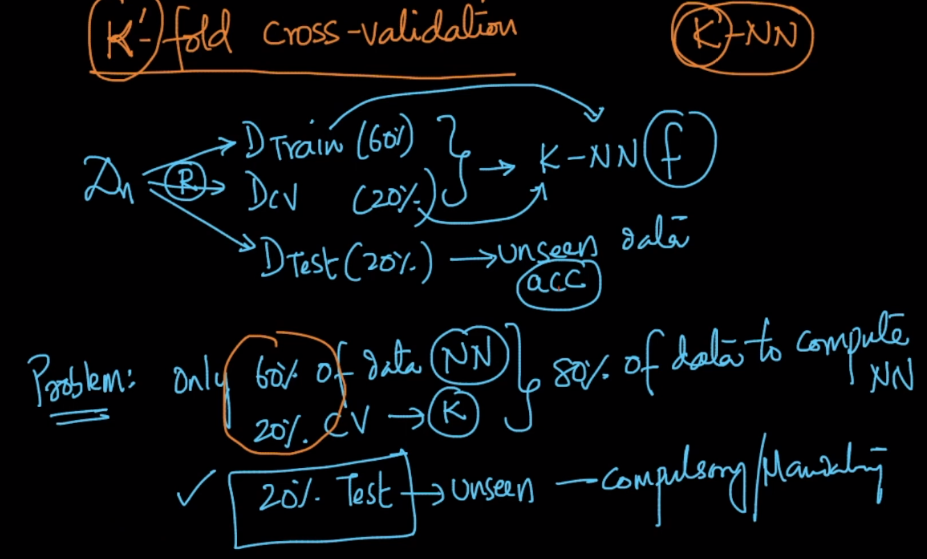 K'-fold cross-validation K-NN
Dn R DTrain (60%) K-NN f
DCV (20%)
DTest (20%) → unseen data
acc
Problem: Only 60% of data NN 80% of data to compute NN
20% CV → K
✓ 20% Test → unseen — compulsory/Mandatory